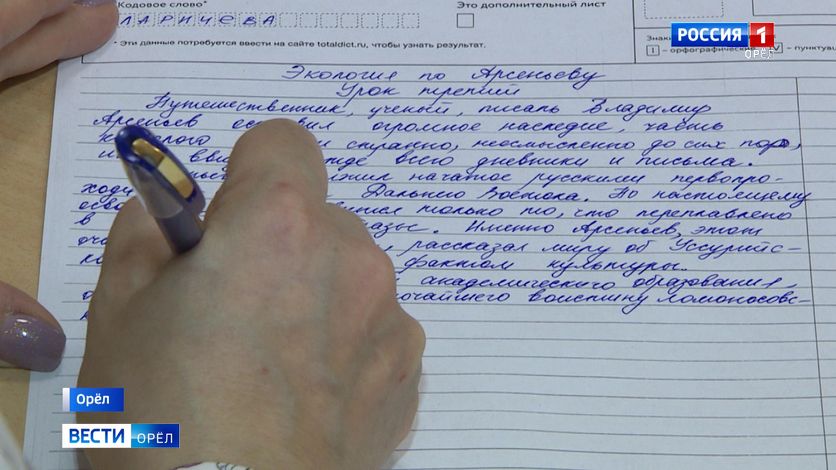 Кодовое слово*
ЛАРИЧЕВА
Это дополнительный лист
* Эти данные потребуется ввести на сайте totaldict.ru, чтобы узнать результат.
РОССИЯ 1
ОРЁЛ
Знаки
I - орфографический V - пунктуа
Экология по Арсеньеву
Урок третий
Путешественник, учёный, писатель Владимир
Арсеньев огромное наследие, часть
странно, неосмысленно до сих пор,
всего дневники и письма.
начатое русскими первопро-
ходц Дальнего Востока. По настоящему
осво только то, что переплавлено
в Именно Арсеньев, этот
рассказал миру об Уссурийс-
фактом культуры.
академического образования,
воистину ломоносовс-
Орёл
ВЕСТИ ОРЁЛ